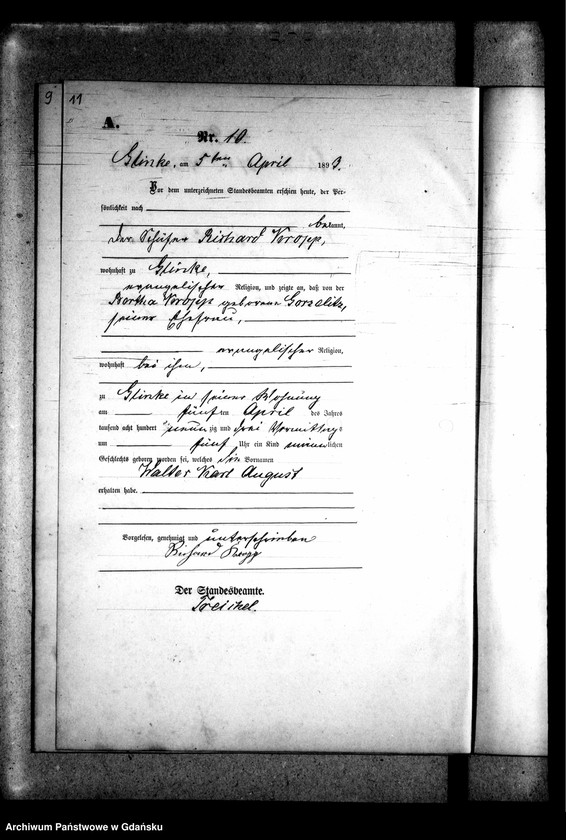 9 11
A.
Nr. 10.
Glinke, am 5ten April 1893.
Vor dem unterzeichneten Standesbeamten erschien heute, der Per-
sönlichkeit nach
bekannt,
der Schäfer Richard Kropp,
wohnhaft zu Glinke,
evangelischer Religion, und zeigte an, daß von der
Bertha Kropp geborene Gorzelitz,
seiner Ehefrau,
evangelischer Religion,
wohnhaft bei ihm,
zu Glinke in seiner Wohnung
am fünften April des Jahres
tausend acht hundert neunzig und drei Vormittags
um fünf Uhr ein Kind männlichen
Geschlechts geboren worden sei, welches die Vornamen
Walter Karl August
erhalten habe.
Vorgelesen, genehmigt und unterschrieben
Richard Kropp
Der Standesbeamte.
Treichel.
Archiwum Państwowe w Gdańsku